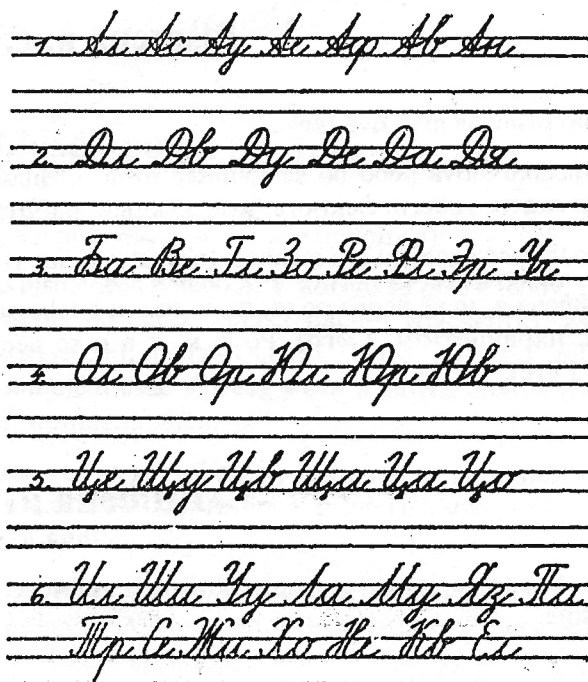 1. Ал Ас Ау Ае Аф Ав Ан
2. Дл Дв Ду Де Да Дя
3. Ба Ве Гл Зо Ре Фл Эр Уч
4. Ол Ов Ор Юл Юр Юв
5. Це Щу Цв Ща Ца Цо
6. Ил Ша Чу Ла Му Яз Па
Тр Се Жи Хо Не Кв Ел